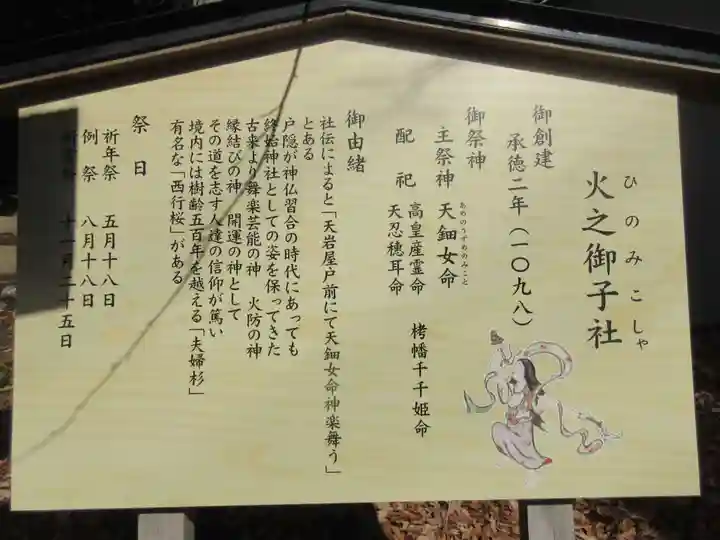 火之御子社
ひのみこしゃ
御創建
承徳二年(一〇九八)
御祭神
主祭神 天鈿女命
あめのうずめのみこと
配祀 高皇産霊命 栲幡千千姫命
天忍穂耳命
御由緒
社伝によると「天岩屋戸前にて天鈿女命神楽舞う」
とある
戸隠が神仏習合の時代にあっても
終始神社としての姿を保ってきた
古来より舞楽芸能の神 火防の神
縁結びの神 開運の神として
その道を志す人達の信仰が篤い
境内には樹齢五百年を越える「夫婦杉」
有名な「西行桜」がある
祭日
祈年祭 五月十八日
例祭 八月十八日
十一月二十五日